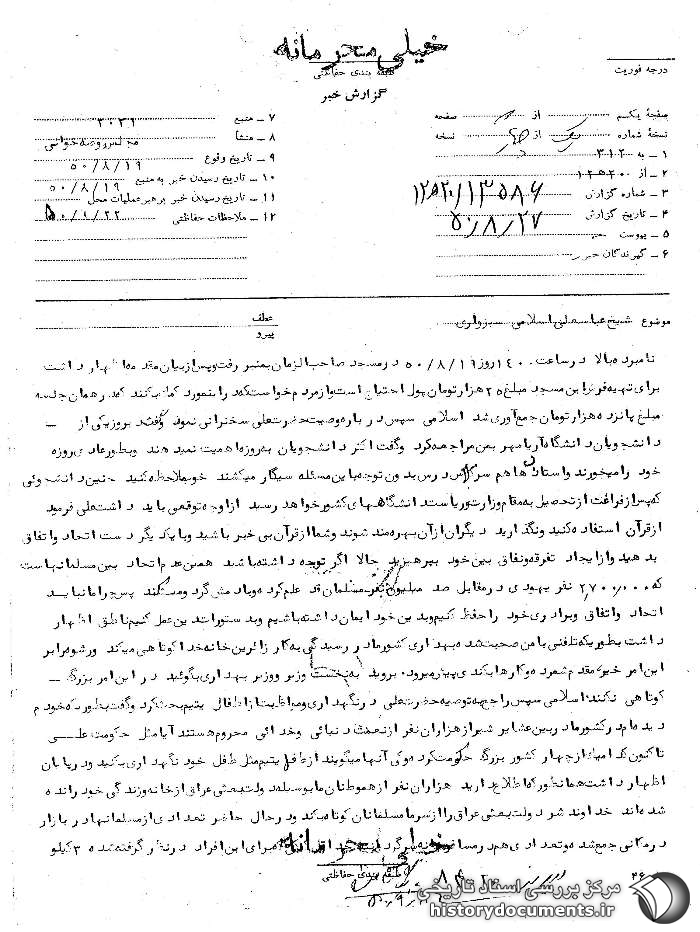 خیلی محرمانه
طبقه بندی حفاظتی
گزارش خبر
درجه فوریت
صفحهٔ یکم از صفحه
نسخهٔ شماره از نسخه
۱ ـ به ۳۱۲
۲ ـ از ۱۲۵۲۰
۳ ـ شماره گزارش ۱۲۵۲۰/۱۳۵۸۶
۴ ـ تاریخ گزارش ۵۰/۸/۲۷
۵ ـ پیوست
۶ ـ گیرندگان خبر
۷ ـ منبع ۲۰۳۱
۸ ـ منشأ مجلس روضه خوانی
۹ ـ تاریخ وقوع ۵۰/۸/۱۹
۱۰ ـ تاریخ رسیدن خبر به منبع ۵۰/۸/۱۹
۱۱ ـ تاریخ رسیدن خبر برهبر عملیات محل
۱۲ ـ ملاحظات حفاظتی
موضوع شیخ عباسعلی اسلامی سبزواری
عطف
پیرو
نامبرده بالا در ساعت ۱۴۰۰ روز ۵۰/۸/۱۹ در مسجد صاحب الزمان بمنبر رفت و پس از بیان مقدمه اظهار داشت
برای تهیه فرش این مسجد مبلغ ۲۵ هزار تومان پول احتیاج است و از مردم خواست که در اینمورد کمک بکنند که در همان جلسه
مبلغ پانزده هزار تومان جمع آوری شد اسلامی سپس در باره وصیت حضرت علی سخنرانی نمود و گفت دیروز یکی از ـ
دانشجویان دانشگاه آریامهر بمن مراجعه کرد و گفت اکثر دانشجویان به روزه اهمیت نمیدهند و بطور عادی روزه
خود را میخورند و استادها هم سر کلاس درس بدون توجه باین مسئله سیگار میکشند خوب ملاحظه کنید چنین دانشجوئی
که پس از فراغت از تحصیل به مقام وزارت و ریاست دانشگاههای کشور خواهد رسید از او چه توقعی باید داشت علی فرمود
از قرآن استفاده کنید و نگذارید دیگران از آن بهره مند شوند و شما از قرآن بی خبر باشید و با یکدیگر دست اتحاد و اتفاق
بدهید و از ایجاد تفرقه و نفاق بین خود بپرهیزید حالا اگر توجه داشته باشید همین عدم اتحاد بین مسلمانهاست
که ۲٫۷۰۰٫۰۰۰ نفر یهودی در مقابل صد میلیون نفر مسلمان قد علم کرده و پادمش گرد و میکند پس چرا ما نباید
اتحاد و اتفاق و برادری خود را حفظ کنیم و بدین خود ایمان داشته باشیم و بدستورات دین عمل کنیم ناطق اظهار
داشت بطوریکه تلفنی با من صحبت شده بهداری کشور ما در رسیدگی بکار زائرین خانه خدا کوتاهی میکند و رشوه را بر
این امر خیر مقدم شمرده و کارها بکندی پیش میرود. بروید به نخست وزیر و وزیر بهداری بگوئید در این امر بزرگ ـ
کوتاهی نکنند؛ اسلامی سپس راجع به توصیه حضرت علی در نگهداری و مواظبت از اطفال یتیم بحث کرد و گفت بطوریکه خودم
دیده ام در کشور ما در بین عشایر شیراز هزاران نفر از نعمت دنیائی و خدائی محروم هستند آیا مثل حکومت علـی
تاکنون کدامیک از چهار کشور بزرگ حکومت کرده و کی آنها میگویند از طفل یتیم مثل طفل خود نگهداری بکنید و در پایان
اظهار داشت همانطور که اطلاع دارید هزاران نفر از هموطنان ما بوسیله دولت بعثی عراق از خانه و زندگی خود رانده
شده اند خداوند شر دولت بعثی عراق را از سر ما مسلمانان کوتاه بکند و در حال حاضر تعدادی از مسلمانها در بازار
در مکانی جمع شده و تعدادی هم در مسافر برای این افراد در نظر گرفته شده ۳ کیلو
خیلی محرمانه
طبقه بندی حفاظتی
۴۶
مرکز بررسی اسناد تاریخی
historydocuments.ir